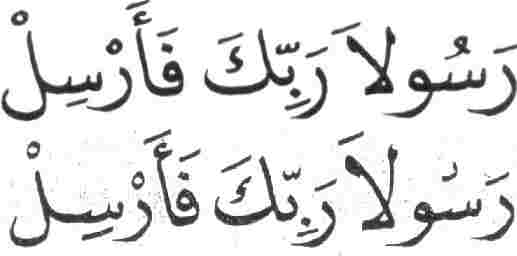 رَسُولاَ رَبِّكَ فَأَرْسِلْ
رَسُولاَ رَبِّكَ فَأَرْسِلْ